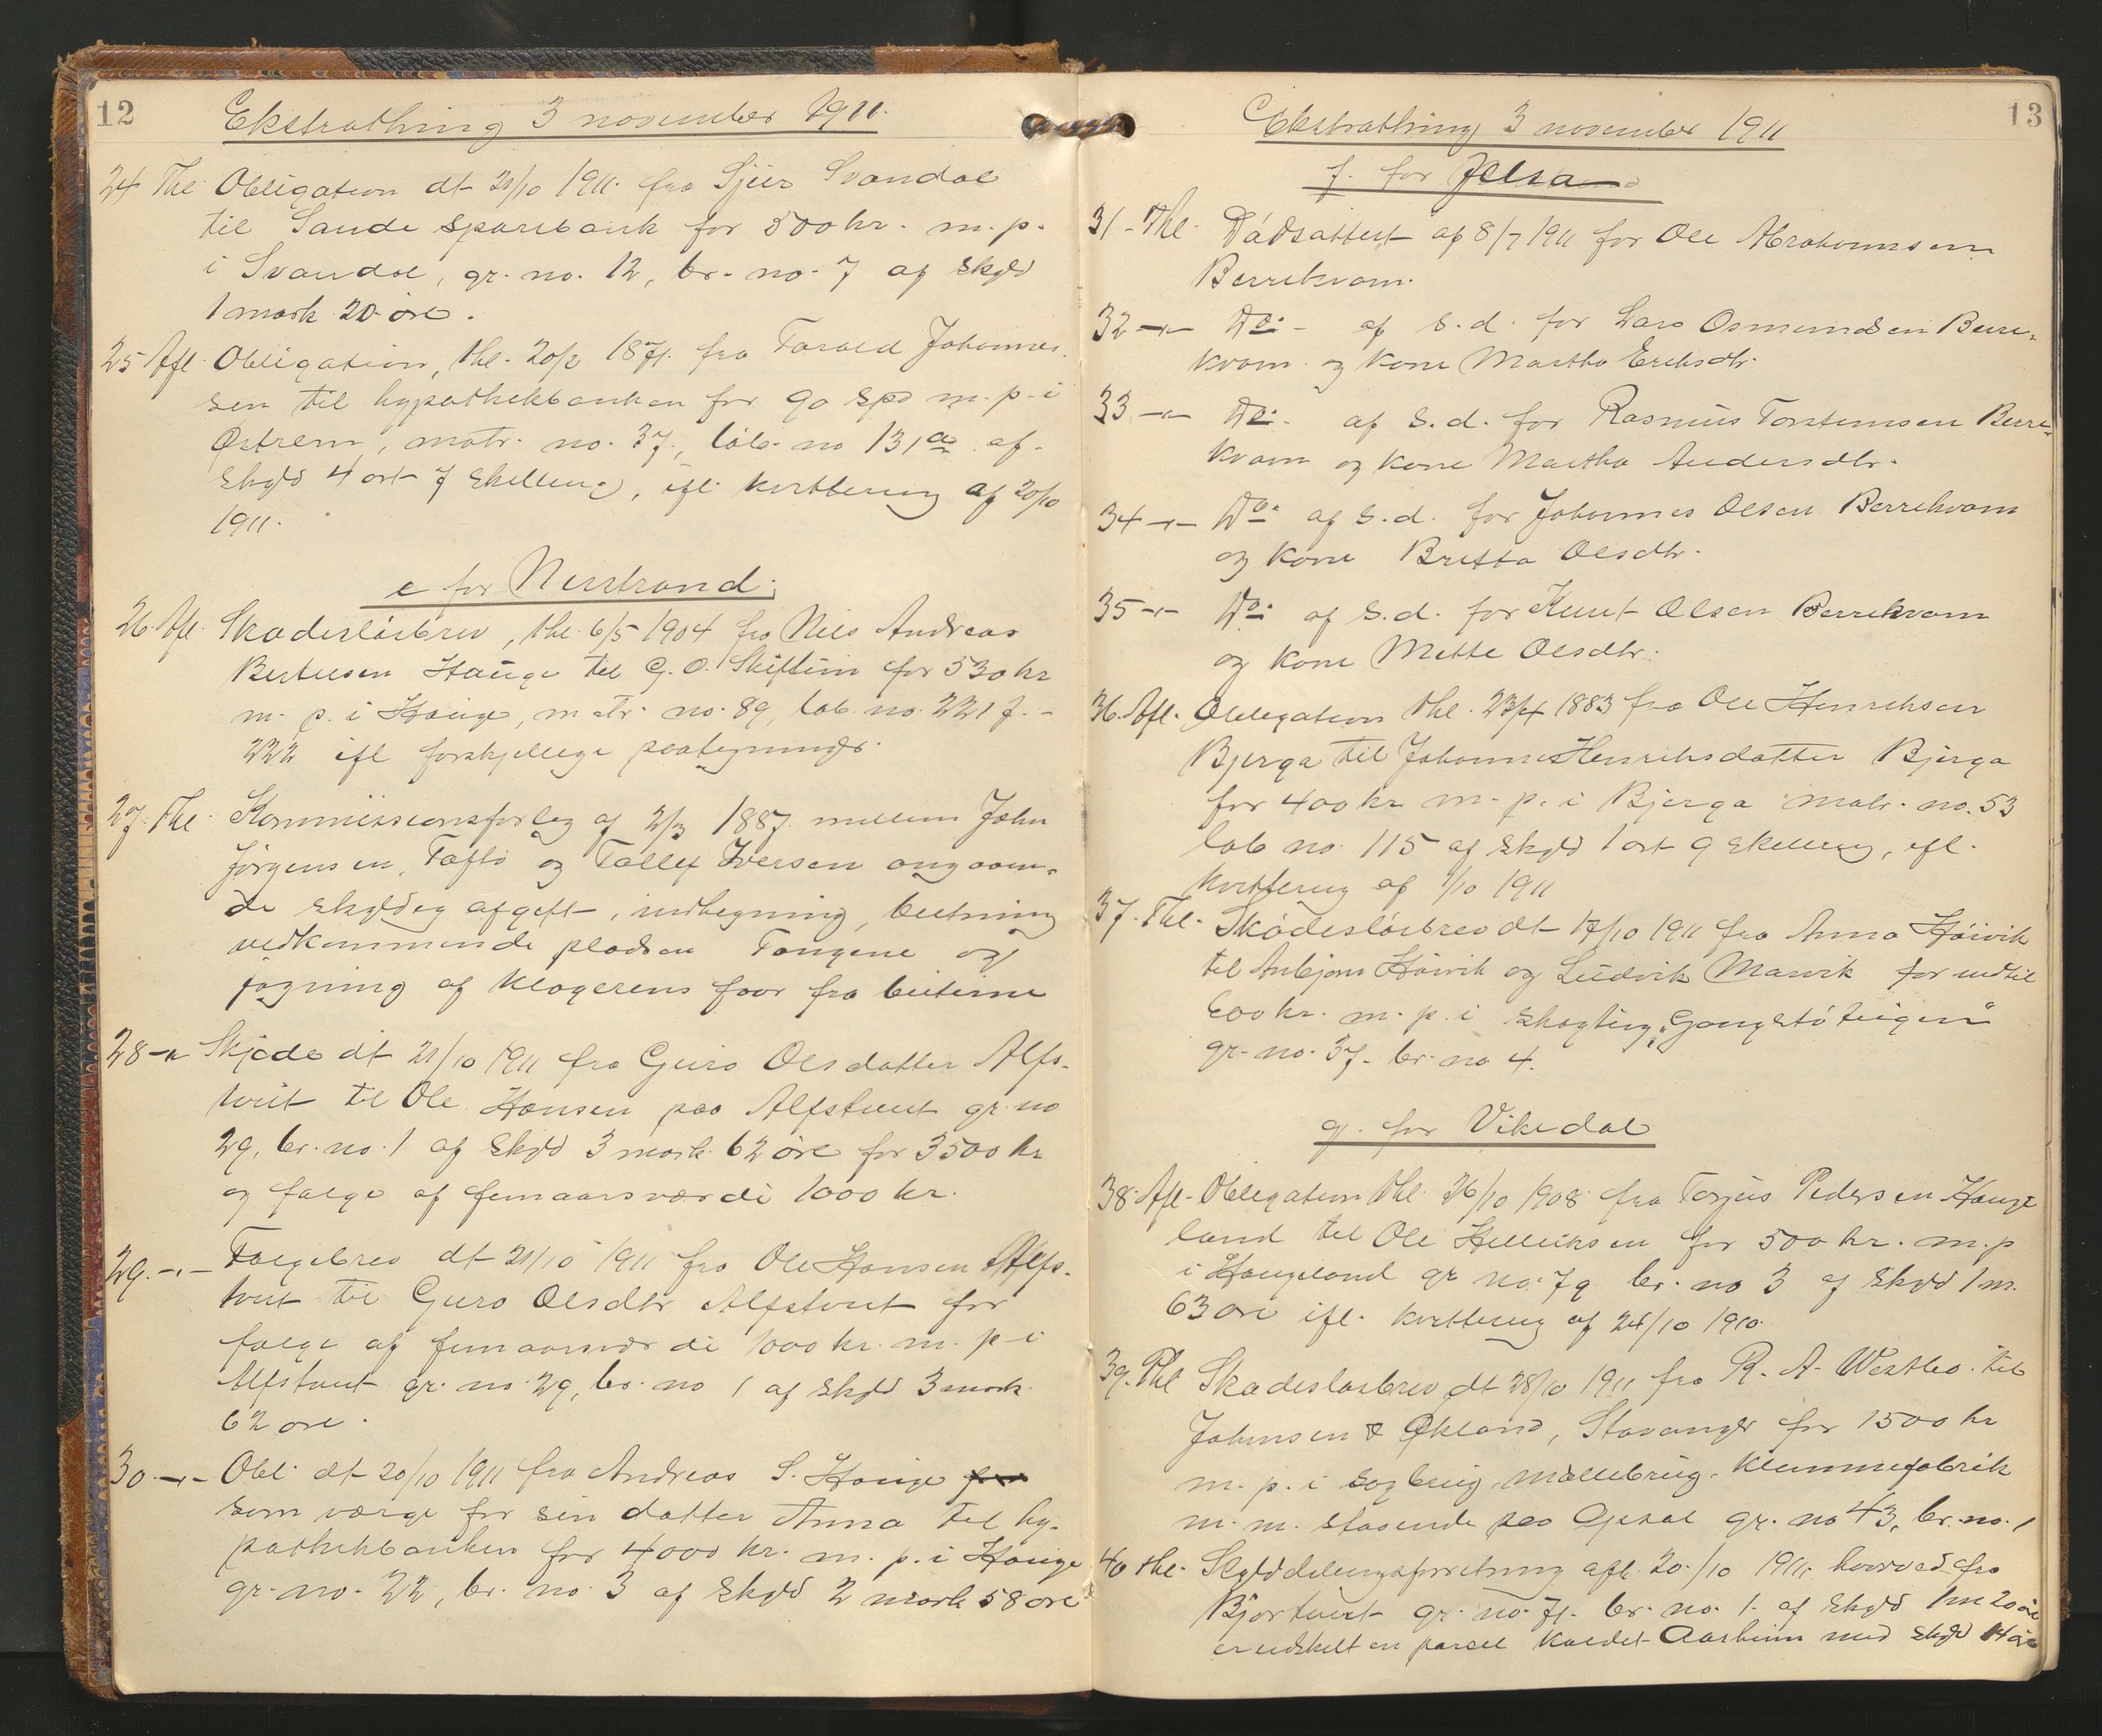 12
Ekstrathing 3 november 1911.
24 Thl. Obligation dt 21/10 1911. fra Sjur Svandal
til Sande Sparebank for 500 kr. m. p.
i Svandal, gr. no. 12, br. no. 7 af skyld
1 mark 20 öre.
25 Afl. Obligation, thl. 20/2 1871. fra Tarald Johannes-
sen til hypothekbanken for 90 spd m. p. i
Östrem, matr. no. 37, löb. no 131a af
skyld 4 ort 7 skilling, ifl. kvittering af 20/10
1911.
e for Nerstrand.
26. Afl. Skadeslösbrev, thl. 6/5 1904 fra Nils Andreas
Bertelsen Hauge til G. O. Skiftun for 530 kr
m. p. i Hauge, matr. no. 89, löb. no. 221 f. -
222 ifl forskjellige paategninger.
27. Thl. Kommissionsforlig af 2/3 1887. mellem John
Jörgensen, Taftö og Tollef Iversen angaaen-
de skyldig afgift, indhegning, beitning
vedkommende pladsen Tangene og
jagning af klagerens faar fra beiterne
28 -"- Skjöde dt 21/10 1911 fra Guro Olsdatter Alfs-
tveit til Ole Hansen paa Alfstveit gr. no
29, br. no. 1 af skyld 3 mark 62 öre for 3500 kr
og folge af femaarsværdi 1000 kr.
29. -"- Folgebrev dt 21/10 1911 fra Ole Hansen Alfs-
tveit til Guro Olsdtr Alfstveit for
folge af femaarsværdi 1000 kr. m. p. i
Alfstveit gr. no. 29, br. no 1 af skyld 3 mark
62 öre.
30. -"- Obl. dt 20/10 1911 fra Andreas S. Hauge
som værge for sin datter Anna til hy-
pothekbanken for 4000 kr. m. p. i Hauge
gr. no. 22, br. no. 3 af skyld 2 mark 58 öre
13
Ekstrathing 3 november 1911
f. for Jelsa
31 - Thl. Dödsattest af 8/7 1911 for Ole Abrahamsen
Berrekvam.
32 -"- Do. - af s. d. for Lars Osmundsen Berre-
kvam og kone Martha Eriksdtr.
33 -"- Do. af s. d. for Rasmus Torstensen Berre-
kvam og kone Martha Andersdtr.
34 -"- Do. af s. d. for Johannes Olsen Berrekvam
og kone Britta Olsdtr.
35 -"- Do. af s. d. for Knut Olsen Berrekvam
og kone Mette Olsdtr.
36. Afl. Obligation thl. 23/4 1883 fra Ole Henriksen
Bjerga til Johannes Henriksdatter Bjerga
for 400 kr m. p. i Bjerga matr. no. 53
löb no. 115 af skyld 1 ort 9 skilling, ifl.
kvittering af 1/10 1911
37. Thl. Skadeslösbrev dt 17/10 1911 fra Anna Höivik
til Anbjörn Höivik og Ludvik Marvik for indtil
600 kr. m. p. i skogteig „Gangstöteigen"
gr. no. 37. br. no 4.
g. for Vikedal
38. Afl. Obligation thl. 26/10 1908 fra Torjus Pedersen Hauge
land til Ole Helliksen for 500 kr. m. p
i Haugeland gr no. 79 br. no 3 af skyld 1 m.
63 öre ifl. kvittering af 24/10 1910.
39. Thl Skadeslösbrev dt 28/10 1911 fra R. A. Westbö til
Johnsen & Ökland, Stavanger for 1500 kr
m. p. i sagbrug, möllebrug, klemmefabrik
m. m. staaende paa Opsal gr. no 43, br. no. 1
40 thl. Skylddelingsforretning afh. 20/10 1911, hvorved fra
Bjortveit gr. no. 71. br. no. 1. af skyld 1 m 20 öre
er udskilt en parcel kaldet Aarheim med skyld 14 öre